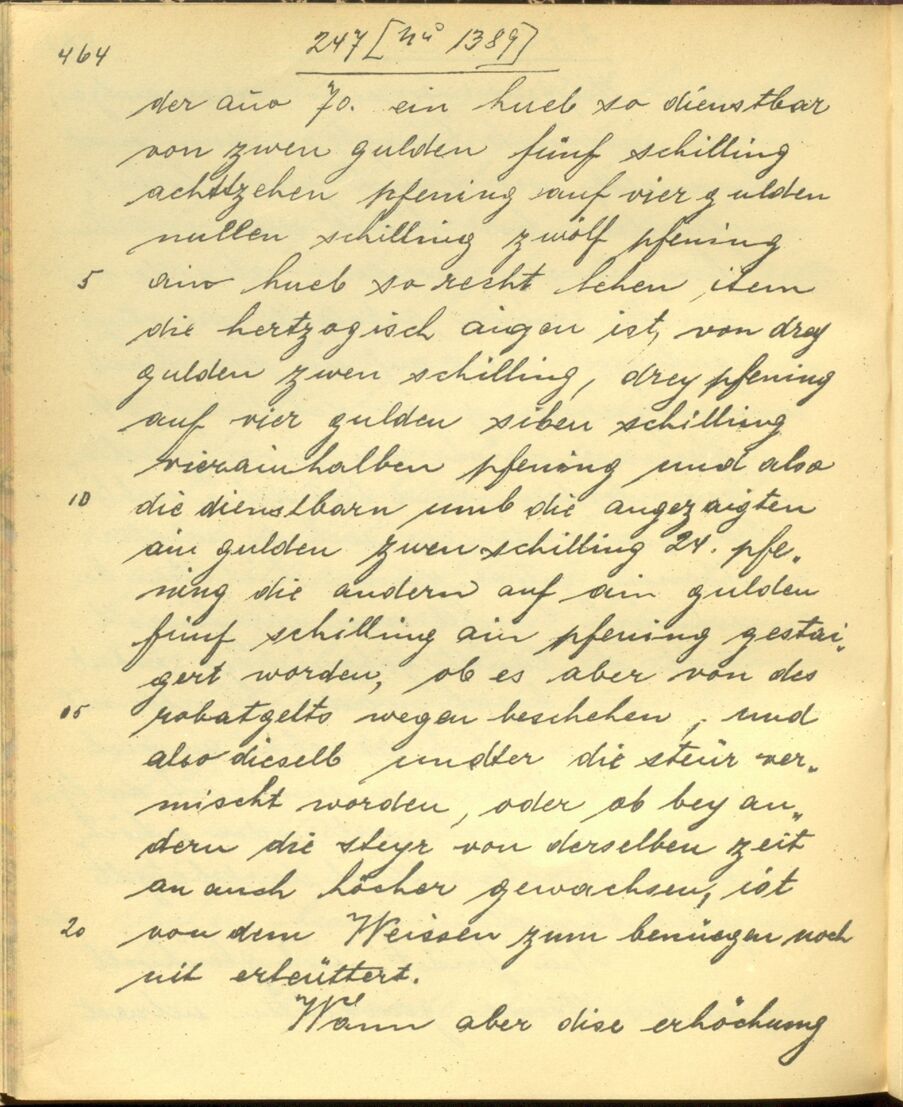 464
247 [No 1389]
der año 70. ein hueb so dienstbar
von zwen gulden fünf schilling
achttzehen pfening auf vier gulden
nullen schilling zwölf pfening
5 ain hueb so recht lehen item
die hertzogisch aigen ist, von drey
gulden zwen schilling, drey pfening
auf vier gulden siben schilling
vierainhalben pfening und also
10 die dienstbarn umb die angezaigten
ain gulden zwen schilling 24. pfe„
ning die andern auf ain gulden
fünf schilling ain pfening gestai„
gert worden, ob es aber von des
15 robatgelts wegen beschehen, und
also dieselb undter die steür ver„
mischt worden, oder ob bey an„
dern die steyr von derselben zeit
an auch höcher gewachsen, ist
20 von dem Weissen zum benüegen noch
nit erleüttert.
Wann aber dise erhöchung